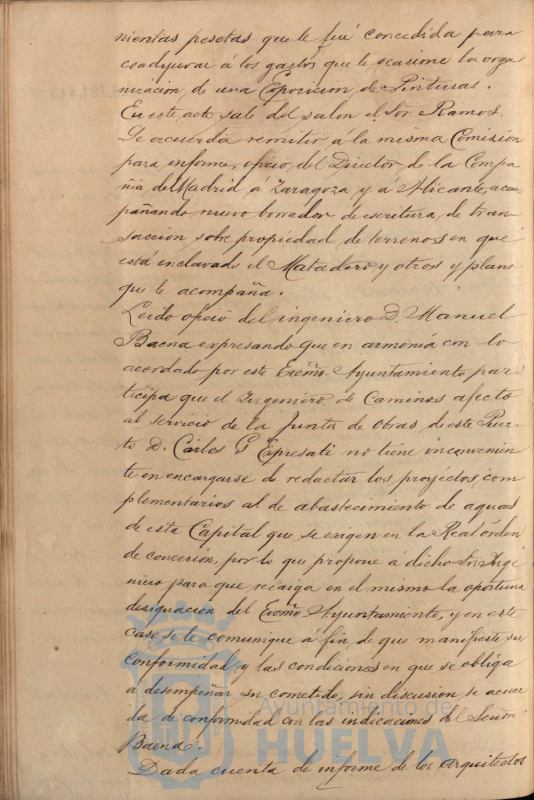 nientas pesetas que le fué concedida para
coadyuvar á los gastos que le ocasione la orga
nización de una Exposicion de Pinturas.
En este acto sale del salon el Sor Ramos.
Se acuerda remitir á la misma Comisión
para informe, oficio del Director de la Compa
ñia de Madrid á Zaragoza y á Alicante, acom
pañando nuevo borrador de escritura de tran
saccion sobre propiedad de terrenos en que
está enclavado el Matadero y otros y plano
que le acompaña.
Leido oficio del ingeniero D. Manuel
Baena expresando que en armonía con lo
acordado por este Excmo Ayuntamiento par
ticipa que el Ingeniero de Caminos afecto
al servicio de la Junta de Obras de este Puer
to D. Carlos G Espresati no tiene inconvenien
te en encargarse de redactar los proyectos com
plementarios al de abastecimiento de aguas
de esta Capital que se exigen en la Real órden
de concesión, por lo que propone á dicho Sor Inge
niero para que recaiga en el mismo la oportuna
designacion del Excmo Ayuntamiento, y en este
caso se le comunique á fin de que manifieste su
conformidad y las condiciones en que se obliga
á desempeñar su cometido, sin discusion se acuer
da de conformidad con las indicaciones del Señor
Baena.
Dada cuenta de informe de los Arquitectos
Ayuntamiento de
HUELVA